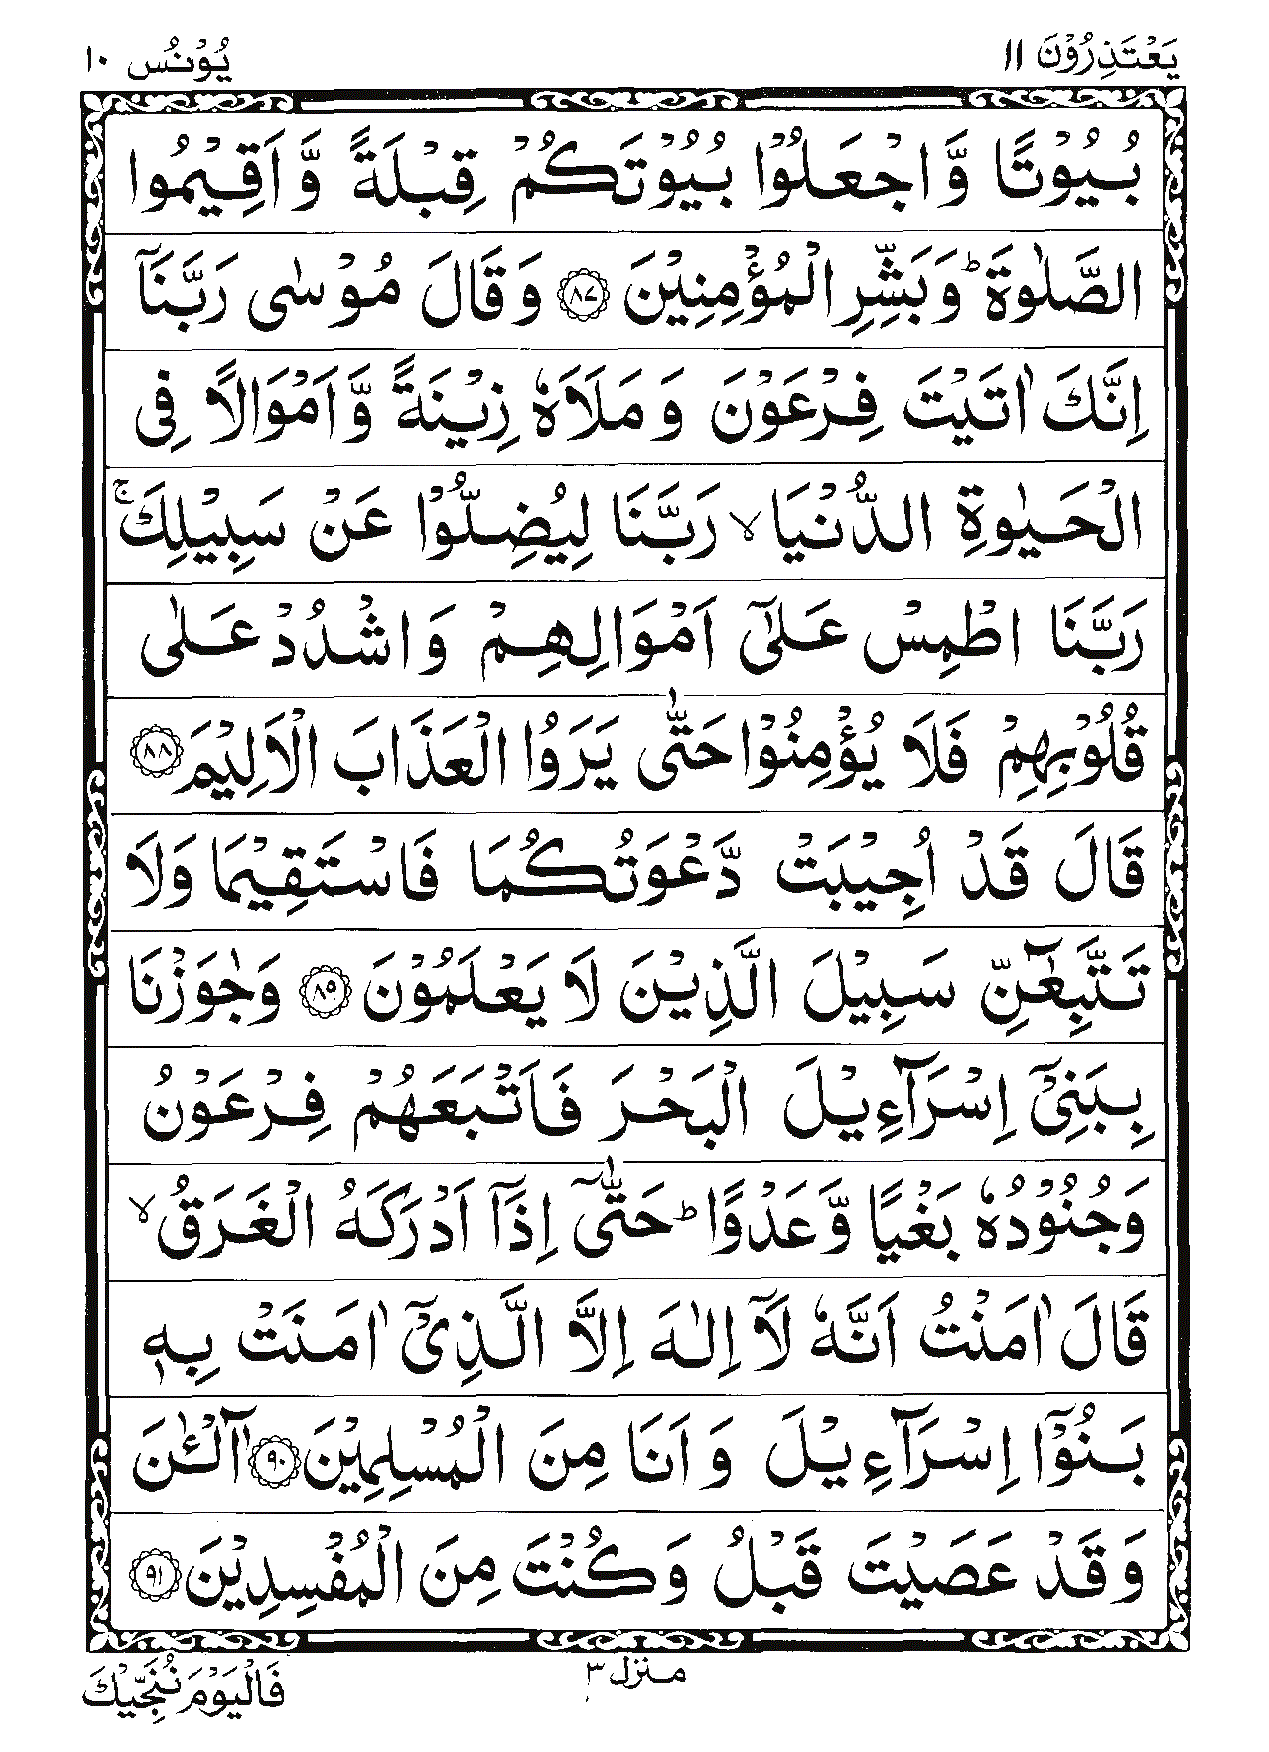 يَعْتَذِرُوْنَ ١١
يُوْنُس ١٠
بُيُوْتًا وَّاجْعَلُوْا بُيُوْتَكُمْ قِبْلَةً وَّاَقِيْمُوا
الصَّلٰوةَ ؕ وَبَشِّرِ الْمُؤْمِنِيْنَ ۝٨٧ وَقَالَ مُوْسٰى رَبَّنَاۤ
اِنَّكَ اٰتَيْتَ فِرْعَوْنَ وَ مَلَاَهٗ زِيْنَةً وَّاَمْوَالًا فِى
الْحَيٰوةِ الدُّنْيَا ۙ رَبَّنَا لِيُضِلُّوْا عَنْ سَبِيْلِكَ ۚ
رَبَّنَا اطْمِسْ عَلٰٓى اَمْوَالِهِمْ وَ اشْدُدْ عَلٰى
قُلُوْبِهِمْ فَلَا يُؤْمِنُوْا حَتّٰى يَرَوُا الْعَذَابَ الْاَلِيْمَ ۝٨٨
قَالَ قَدْ اُجِيْبَتْ دَّعْوَتُكُمَا فَاسْتَقِيْمَا وَلَا
تَتَّبِعٰٓنِّ سَبِيْلَ الَّذِيْنَ لَا يَعْلَمُوْنَ ۝٨٩ وَجٰوَزْنَا
بِبَنِىْۤ اِسْرَآءِيْلَ الْبَحْرَ فَاَتْبَعَهُمْ فِرْعَوْنُ
وَجُنُوْدُهٗ بَغْيًا وَّعَدْوًا ؕ حَتّٰىۤ اِذَاۤ اَدْرَكَهُ الْغَرَقُ ۙ
قَالَ اٰمَنْتُ اَنَّهٗ لَاۤ اِلٰهَ اِلَّا الَّذِىْۤ اٰمَنَتْ بِهٖ
بَنُوْۤا اِسْرَآءِيْلَ وَ اَنَا مِنَ الْمُسْلِمِيْنَ ۝٩٠ اٰۤلْـٰٔنَ
وَقَدْ عَصَيْتَ قَبْلُ وَكُنْتَ مِنَ الْمُفْسِدِيْنَ ۝٩١
منزل ٣
فَالْيَوْمَ نُنَجِّيْكَ